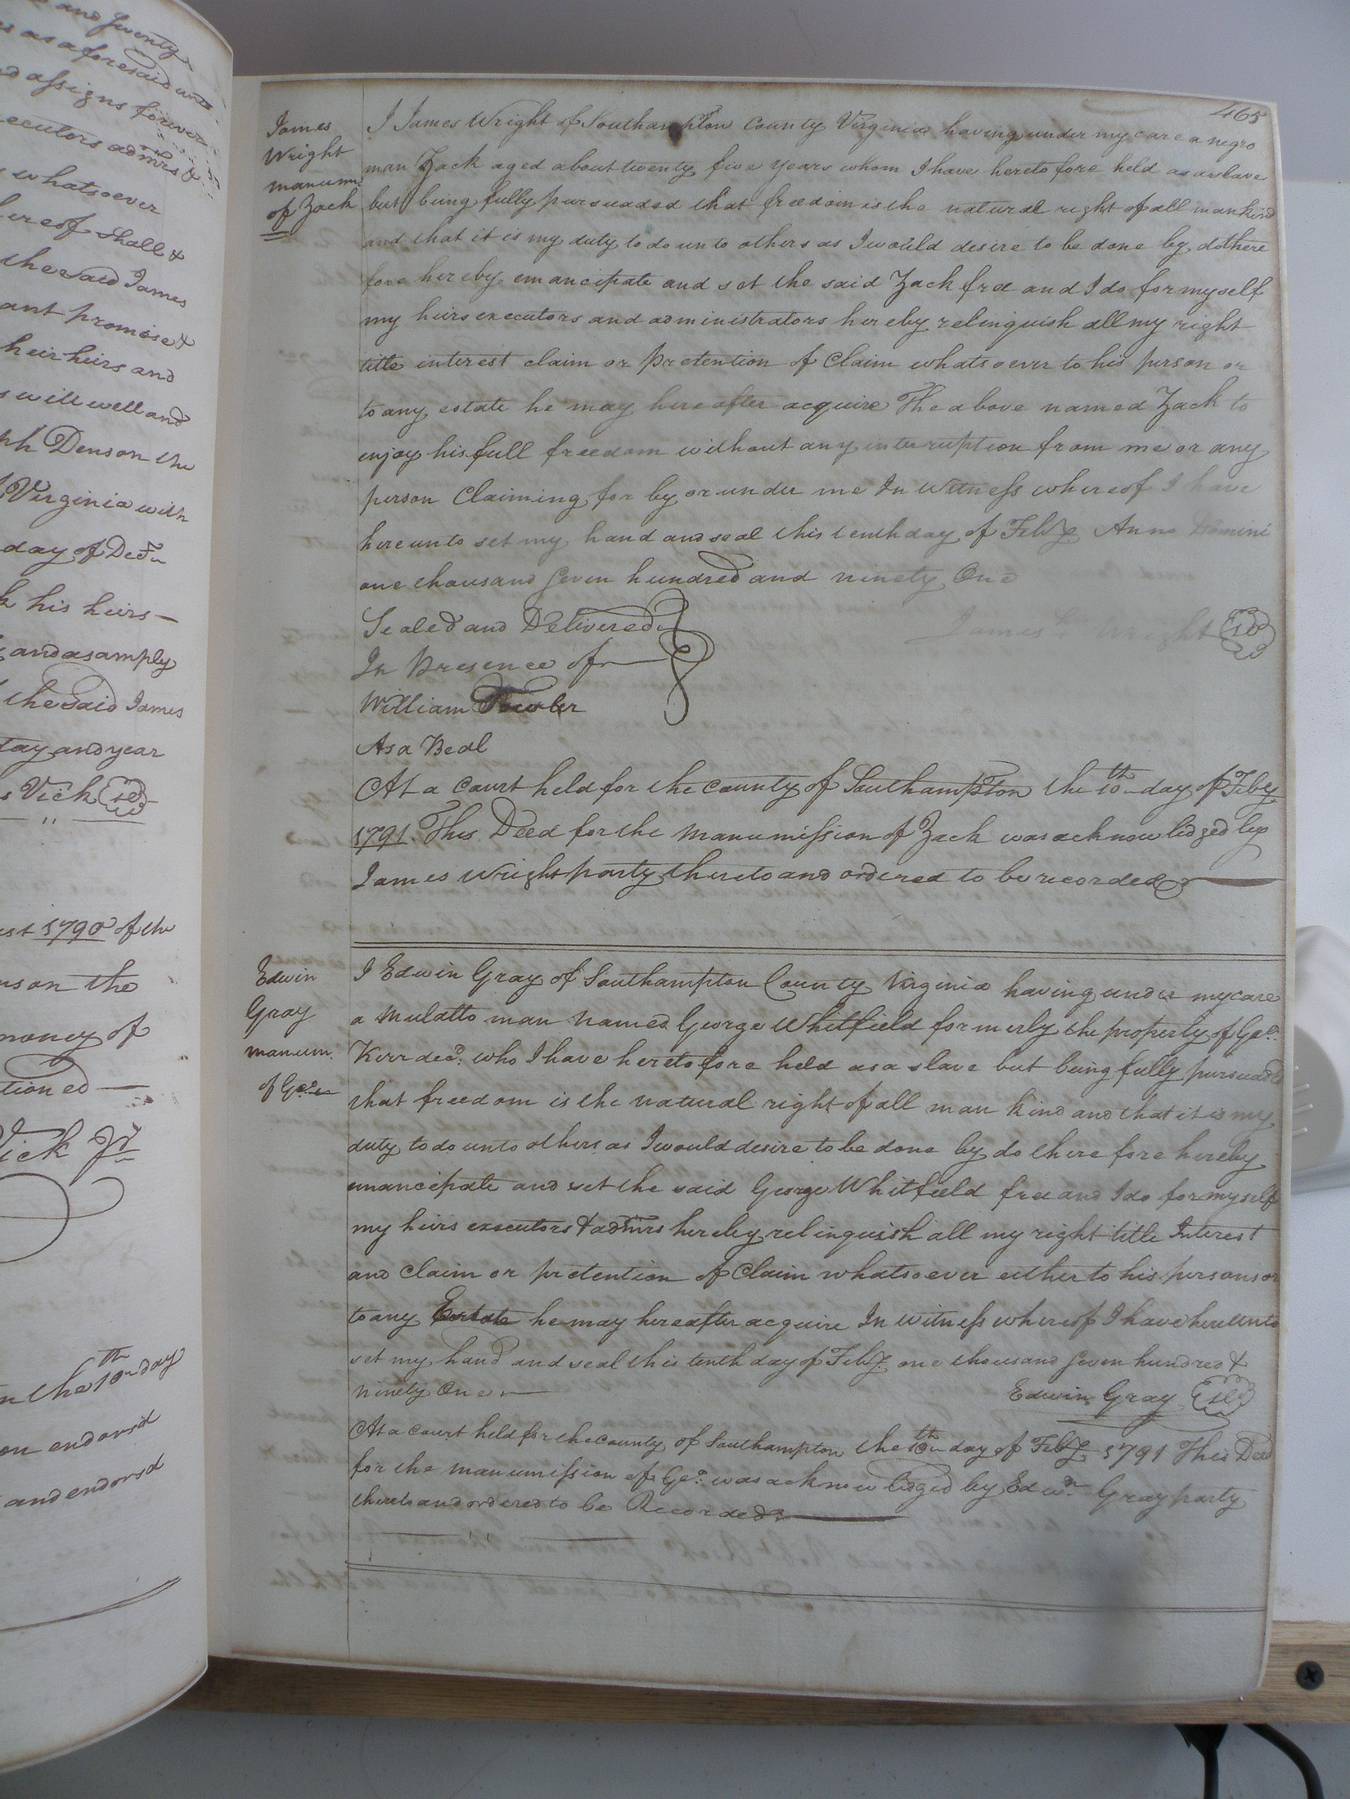 and Twenty
as aforesaid unto
and assigns forever
executors admrs &
whatsoever
hereof shall &
the said James
ant promise &
heir heirs and
s will well and
ph Denson the
Virginia with
day of Decr
k his heirs
and as amply
the said James
day and year
s Vick
est 1790 of the
nson the
money of
tioned
Vick Jr
n the 10th day
on endorsd
and endorsd
465
James
Wright
manum
of Zack
I James Wright of Southampton County Virginia having under my care a negro
man Zack aged about twenty five years whom I have heretofore held as a slave
but being fully pursuaded that freedom is the natural right of all mankind
and that it is my duty to do unto others as I would desire to be done by do there
fore hereby emancipate and set the said Zack free and I do for myself
my heirs executors and administrators hereby relinquish all my right
title interest claim or pretention of Claim whatsoever to his person or
to any estate he may hereafter acquire The above named Zack to
enjoy his full freedom without any interruption from me or any
person Claiming for by or under me In Witness whereof I have
hereunto set my hand and seal this tenth day of Feby Anno Domini
one thousand Seven hundred and ninety One
Sealed and Delivered
James Wright
In Presence of
William Fowler
Asa Beal
At a Court held for the county of Southampton the 10th day of Feby
1791 This Deed for the manumission of Zack was acknowledged by
James Wright party thereto and ordered to be recorded
Edwin
Gray
manum.
of Geo
I Edwin Gray of Southampton County Virginia having under my care
a Mulatto man named George Whitfield formerly the property of Geo.
Kerr decd. who I have heretofore held as a slave but being fully pursuaded
that freedom is the natural right of all man kind and that it is my
duty to do unto others as I would desire to be done by do there fore hereby
emancipate and set the said George Whitfield free and I do for myself
my heirs executors & admrs hereby relinquish all my right title Interest
and Claim or pretention of Claim whatsoever either to his person or
to any Estate he may hereafter acquire In witness whereof I have hereunto
set my hand and seal this tenth day of Feby. one thousand Seven hundred &
ninety One
Edwin Gray
At a Court held for the county of Southampton the 10th day of Feby 1791 This Deed
for the manumission of Geo. was acknowledged by Edwn. Gray party
thereto and ordered to be Recorded